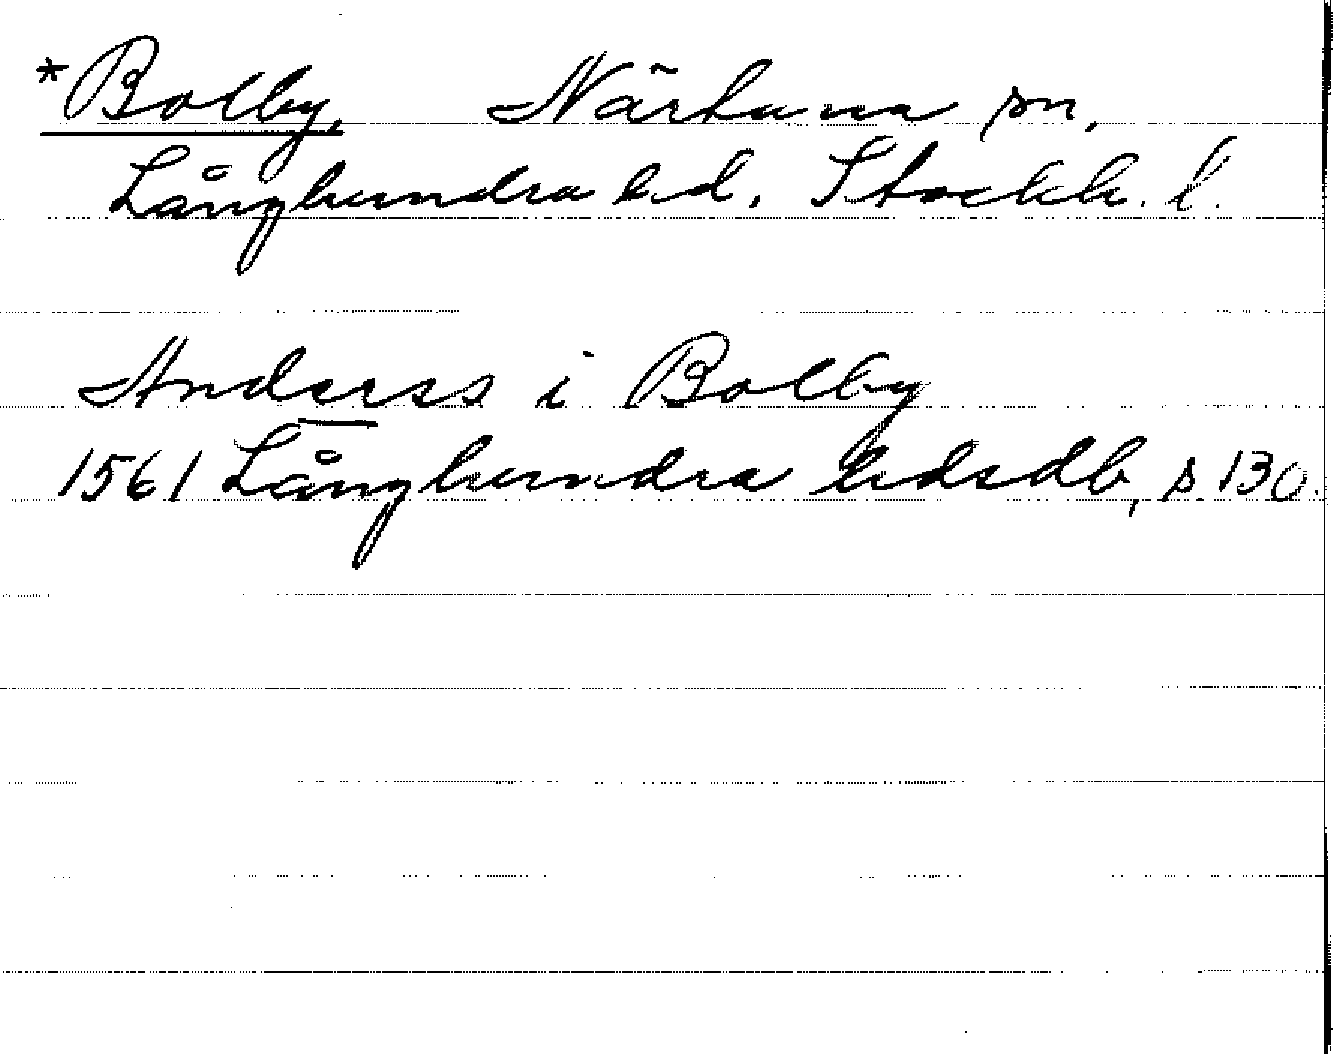 *Bolby, Närtuna sn,
Långhundra hd, Stockh. l.
Anderss i Bolby
1561 Långhundra hdsdb, s 130.